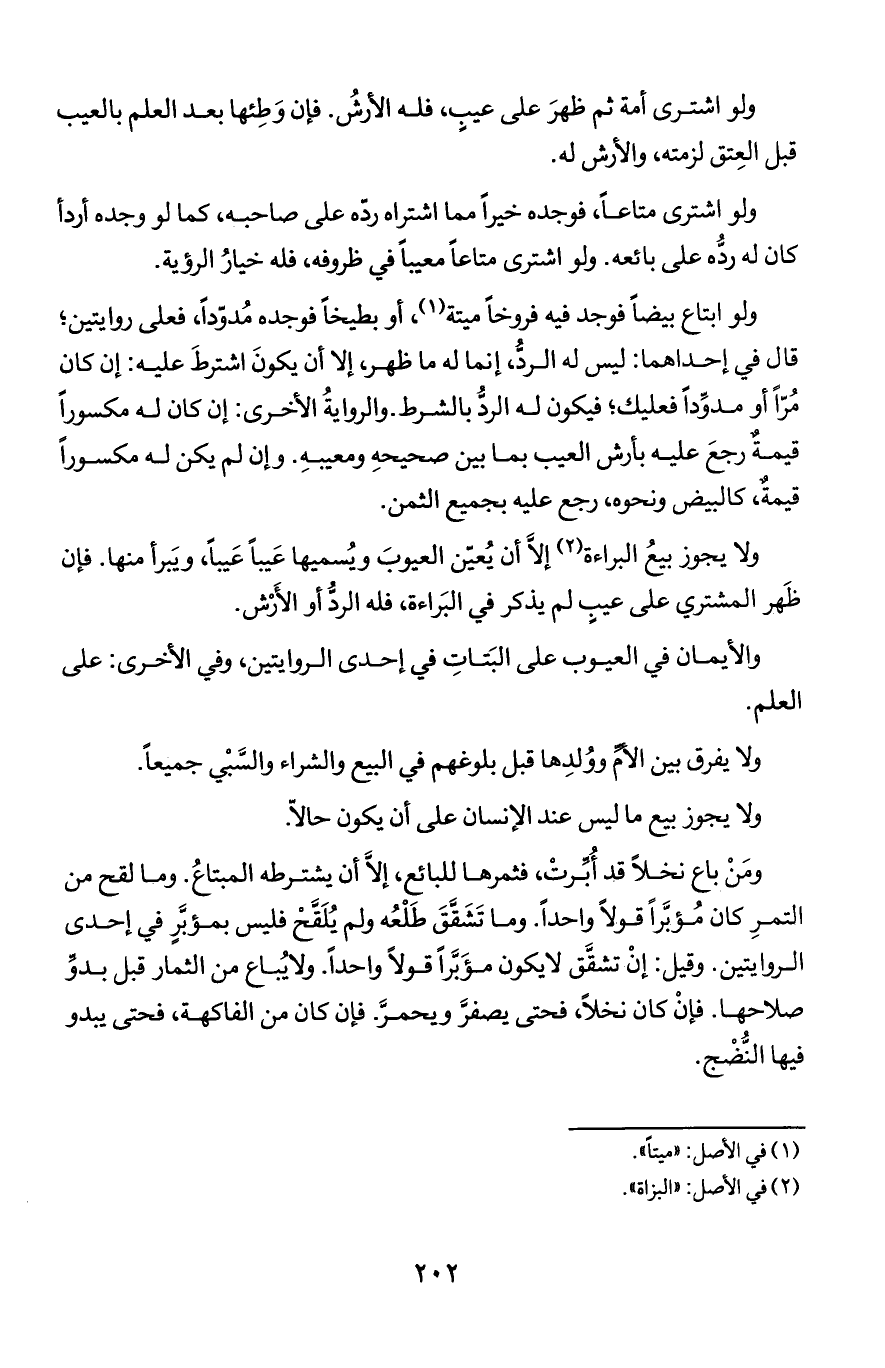 ولو اشترى أمة ثم ظهرَ على عيبٍ، فله الأرشُ. فإن وَطِئها بعد العلم بالعيب
قبل العِتق لزمته، والأرش له.
ولو اشترى متاعاً، فوجده خيراً مما اشتراه ردّه على صاحبه، كما لو وجده أردأ
كان له ردُّه على بائعه. ولو اشترى متاعاً معيباً في ظروفه، فله خيارُ الرؤية.
ولو ابتاع بيضاً فوجد فيه فروخاً ميتة(١)، أو بطيخاً فوجده مُدوّداً، فعلى روايتين؛
قال في إحداهما: ليس له الردُّ، إنما له ما ظهر، إلا أن يكونَ اشترطَ عليه: إن كان
مُرّاً أو مدوِّداً فعليك؛ فيكون له الردُّ بالشرط. والروايةُ الأخرى: إن كان له مكسوراً
قيمةٌ رجعَ عليه بأرش العيب بما بين صحيحهِ ومعيبهِ. وإن لم يكن له مكسوراً
قيمةٌ، كالبيض ونحوه، رجع عليه بجميع الثمن.
ولا يجوز بيعُ البراءة(٢) إلاَّ أن يُعيّن العيوبَ ويُسميها عَيباً عَيباً، ويَبرأ منها. فإن
ظَهر المشتري على عيبٍ لم يذكر في البَراءة، فله الردُّ أو الأَرْش.
والأيمان في العيوب على البَتاتِ في إحدى الروايتين، وفي الأخرى: على
العلم.
ولا يفرق بين الأمِّ ووُلدِها قبل بلوغهم في البيع والشراء والسَّبْي جميعاً.
ولا يجوز بيع ما ليس عند الإنسان على أن يكون حالاّ.
ومَنْ باع نخلاً قد أُبِّرتْ، فثمرها للبائع، إلاَّ أن يشترطه المبتاعُ. وما لقح من
التمرِ كان مُؤبَّراً قولاً واحداً. وما تَشَقَّقَ طَلْعُه ولم يُلَقَّحْ فليس بمؤبَّرٍ في إحدى
الروايتين. وقيل: إنْ تشقَّق لايكون مؤَبَّراً قولاً واحداً. ولايُباع من الثمار قبل بدوِّ
صلاحها. فإنْ كان نخلاً، فحتى يصفرَّ ويحمرَّ. فإن كان من الفاكهة، فحتى يبدو
فيها النُّضْج.
(١) في الأصل: «ميتاً».
(٢) في الأصل: «البزاة».
٢٠٢